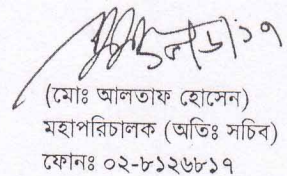 (মোঃ আলতাফ হোসেন)
মহাপরিচালক (অতিঃ সচিব)
ফোনঃ ০২-৮১২৬৮১৭